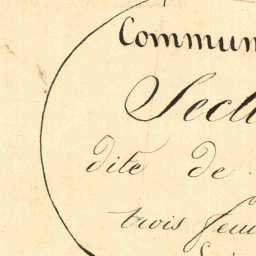 Commun
Secti
dite de
trois feui